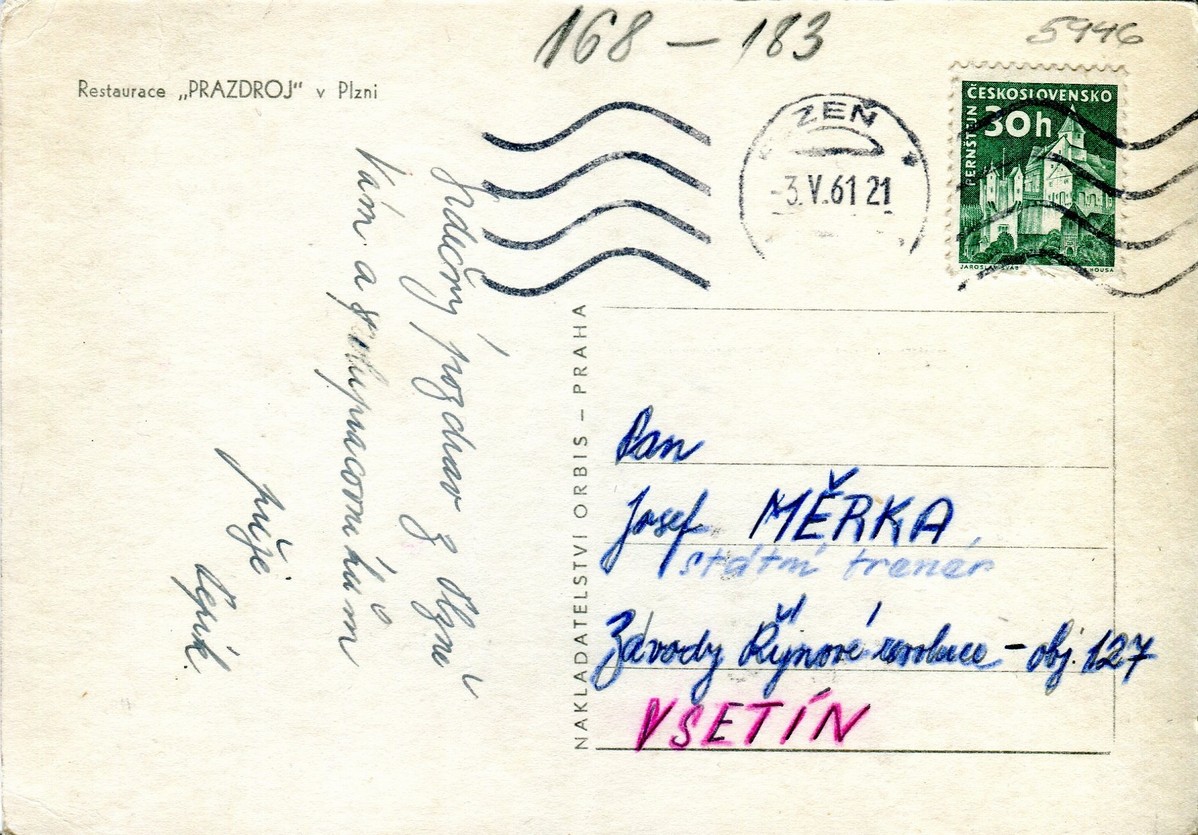 168 – 183
5946
Restaurace „PRAZDROJ“ v Plzni
ZEŇ
-3.V.61 21
ČESKOSLOVENSKO
30h
PERNŠTEJN
JAROSLAV ŠVÁB
HOUSA
Srdečný pozdrav z Plzně
Vám a spolupracovníkům
píše
NAKLADATELSTVÍ ORBIS – PRAHA
Pan
Josef MĚRKA
státní trenér
Závody Říjnové revoluce – obj. 127
VSETÍN